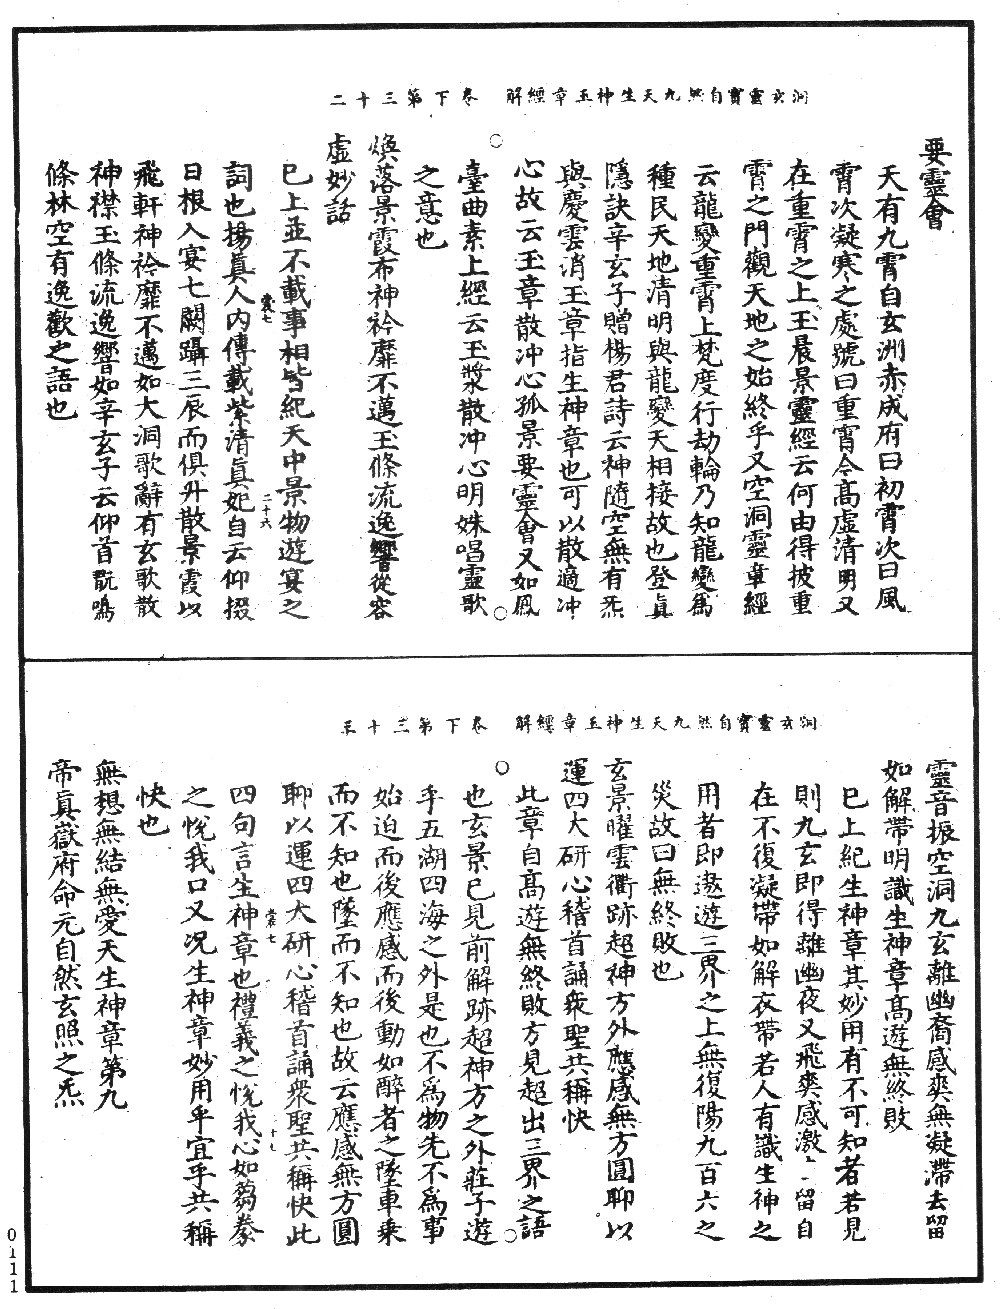 洞玄靈寳自然九天生神玉章經解 卷下第三十二
要靈會
天有九霄自玄洲赤成府曰初霄次曰風
霄次凝寒之處號曰重霄今髙虛清明又
在重霄之上玉晨景靈經云何由得披重
霄之門觀天地之始終乎又空洞靈章經
云龍變重霄上梵度行劫輪乃知龍變爲
種民天地清明與龍變天相接故也登眞
隱訣辛玄子贈楊君詩云神隨空無有炁
與慶雲消玉章指生神章也可以散適冲
心故云玉章散冲心孤景要靈會又如鳳
臺曲素上經云玉漿散冲心明姝唱靈歌
之意也
煥落景霞布神衿靡不邁玉條流逸響從容
虛妙話
巳上並不載事相皆紀天中景物遊宴之
詞也楊眞人內傳載紫清眞妃自云仰掇
日根入宴七闕躡三辰而俱升散景霞以
飛軒神衿靡不邁如大洞歌辭有玄歌散
神襟玉條流逸響如辛玄子云仰首翫鳴
條林空有逸歡之語也
裳七
二十六
洞玄靈寳自然九天生神玉章經解 卷下第三十三
靈音振空洞九玄離幽裔感爽無凝滯去留
如解帶明識生神章髙遊無終敗
巳上紀生神章其妙用有不可知者若見
則九玄即得離幽夜又飛爽感激、留自
在不復凝帶如解衣帶若人有識生神之
用者即遨遊三界之上無復陽九百六之
災故曰無終敗也
玄景曜雲衢跡超神方外應感無方圓聊以
運四大研心稽首誦衆聖共稱快
此章自髙遊無終敗方見超出三界之語
也玄景已見前解跡超神方之外莊子遊
乎五湖四海之外是也不爲物先不爲事
始迫而後應感而後動如醉者之墜車乘
而不知也墜而不知也故云應感無方圓
聊以運四大研心稽首誦衆聖共稱快此
四句言生神章也禮義之悅我心如芻豢
之悅我口又况生神章妙用乎宜乎共稱
快也
無想無結無愛天生神章第九
帝眞嶽府命元自然玄照之炁
裳七
十七
0111